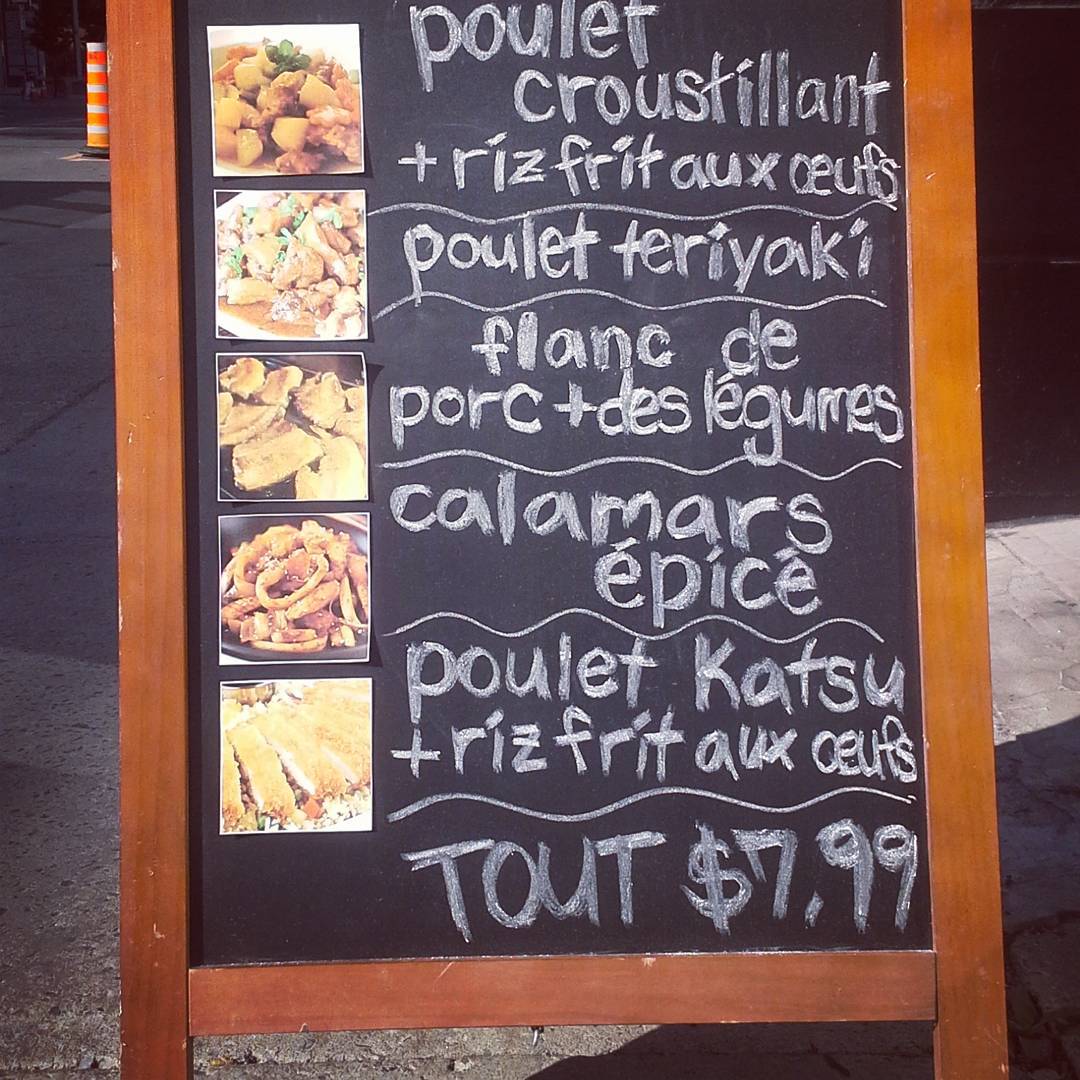 poulet
croustillant
+ riz frit aux œufs
poulet teriyaki
flanc de
porc + des légumes
calamars
épicé
poulet Katsu
+ riz frit aux œufs
TOUT $7.99